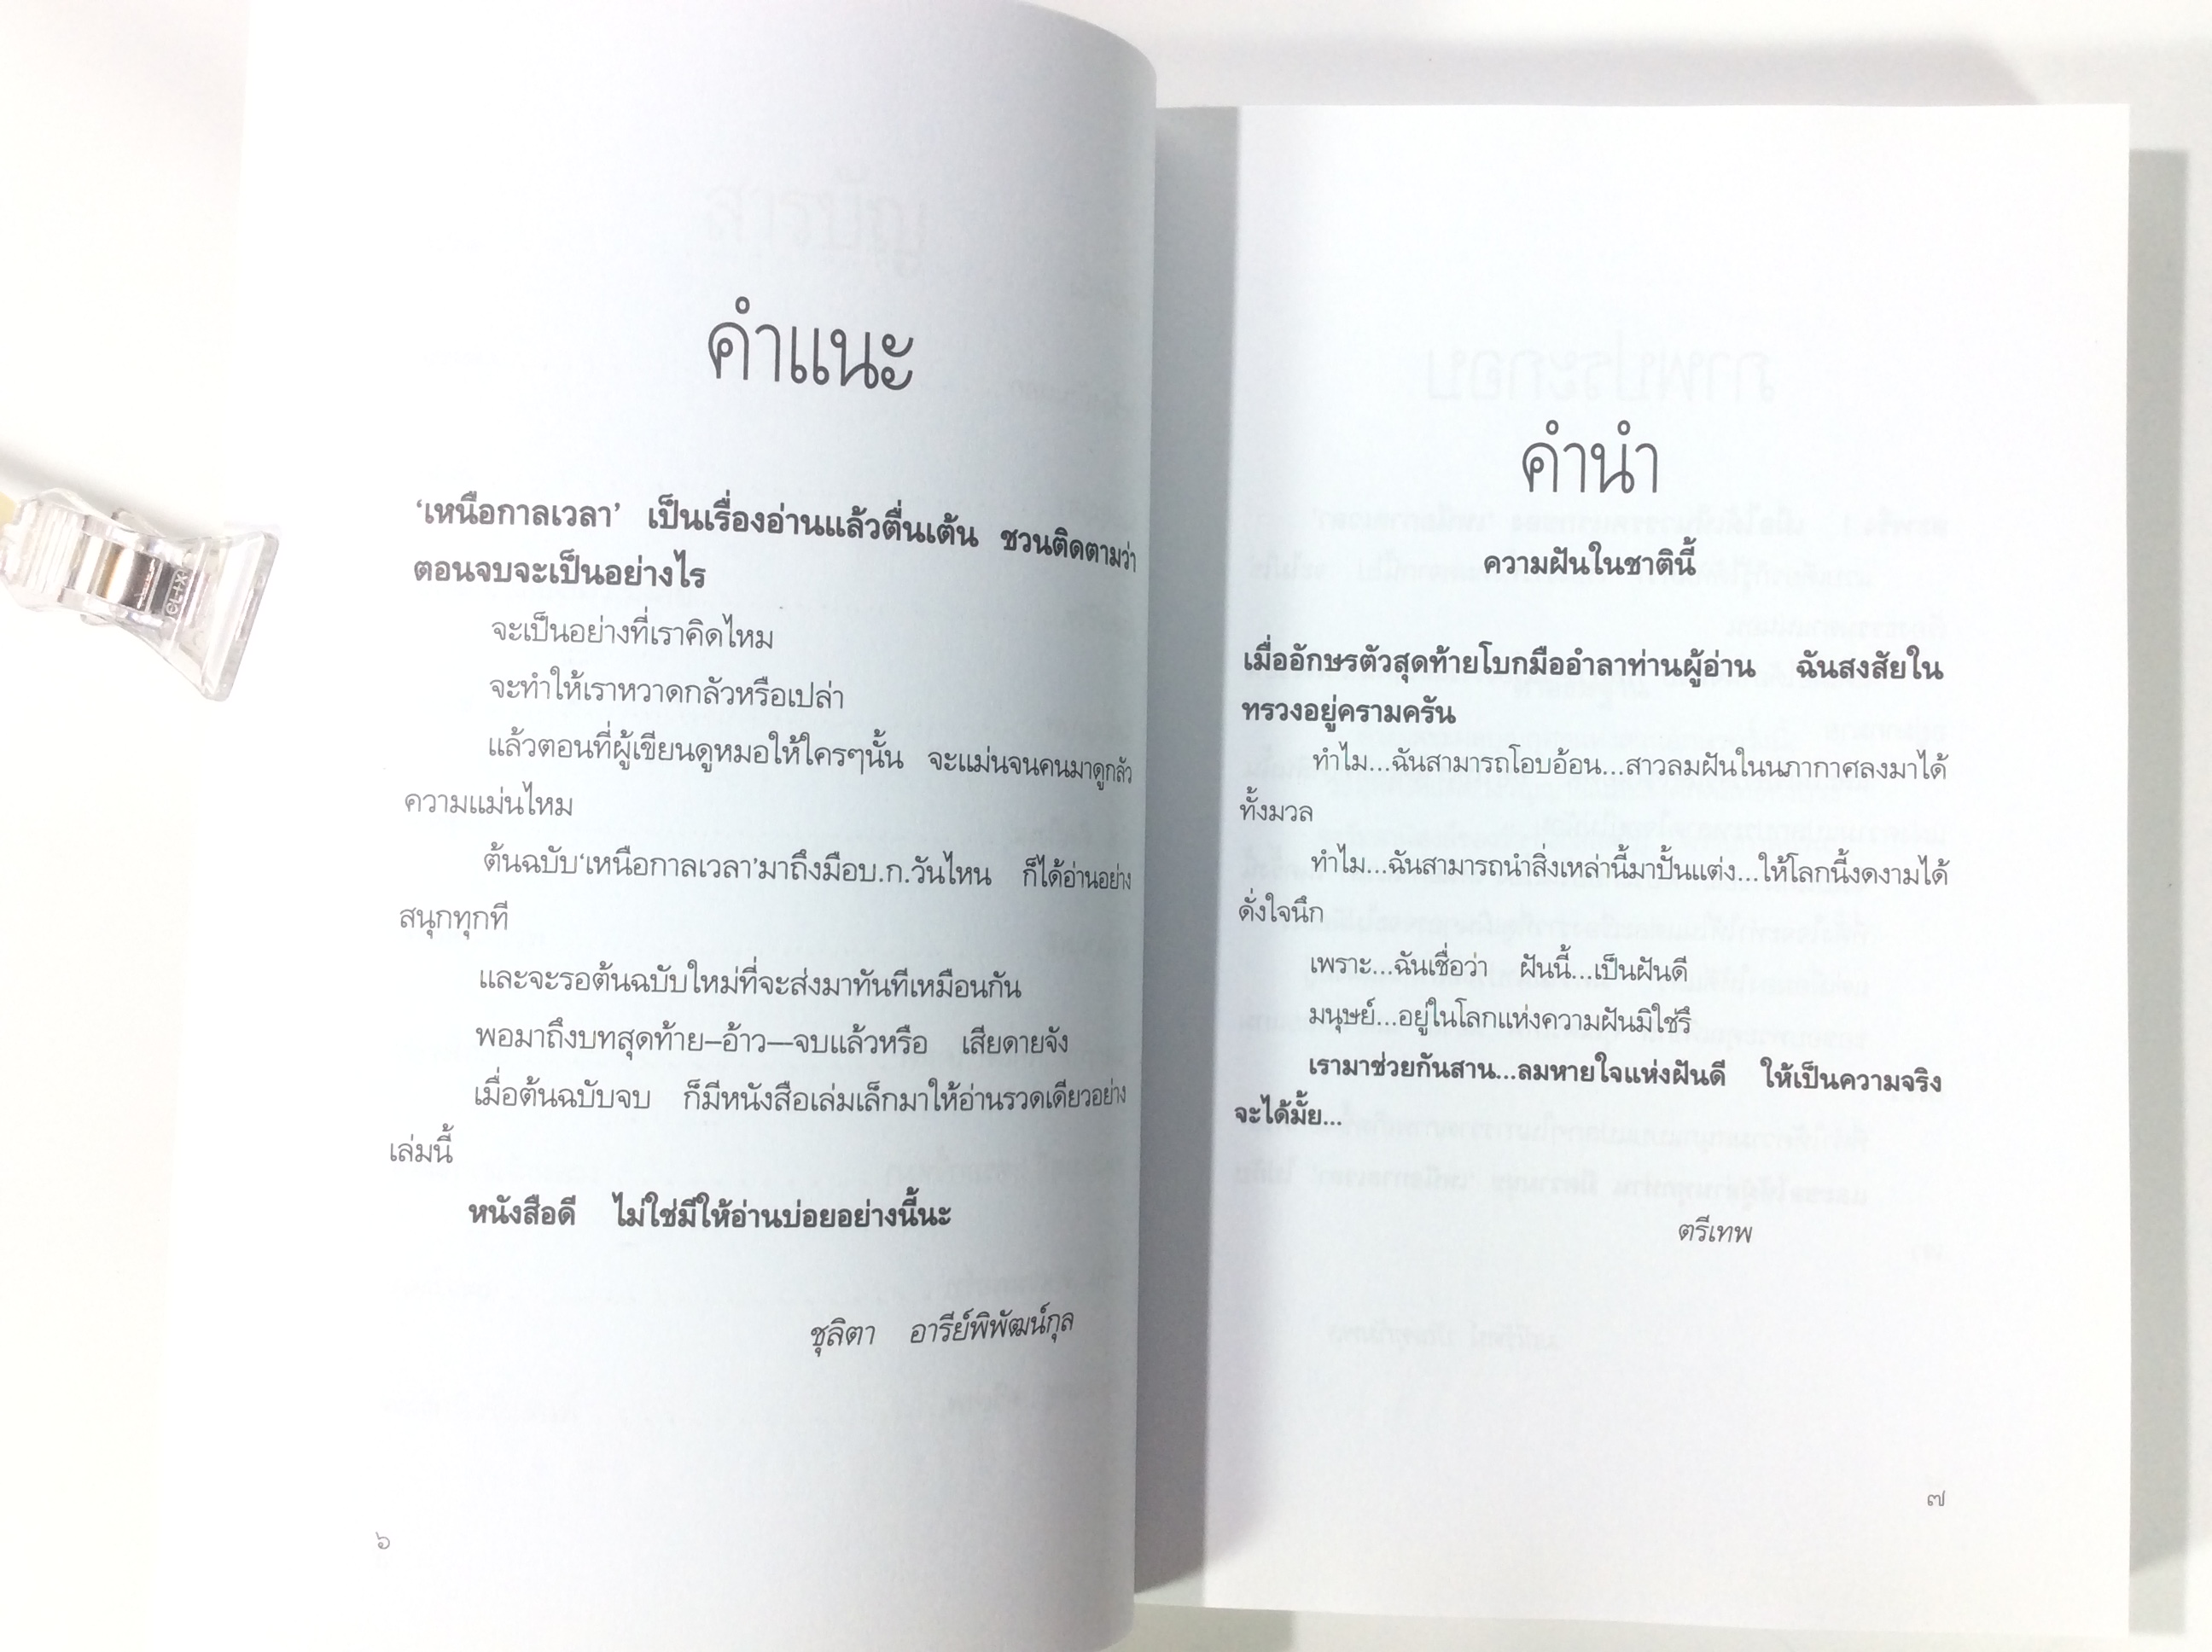 คำแนะ
‘เหนือกาลเวลา’ เป็นเรื่องอ่านแล้วตื่นเต้น ชวนติดตามว่า
ตอนจบจะเป็นอย่างไร
จะเป็นอย่างที่เราคิดไหม
จะทำให้เราหวาดกลัวหรือเปล่า
แล้วตอนที่ผู้เขียนดูหมอให้ใครๆนั้น จะแม่นจนคนมาดูกลัว
ความแม่นไหม
ต้นฉบับ‘เหนือกาลเวลา’มาถึงมือบ.ก.วันไหน ก็ได้อ่านอย่าง
สนุกทุกที
และจะรอต้นฉบับใหม่ที่จะส่งมาทันทีเหมือนกัน
พอมาถึงบทสุดท้าย–อ้าว—จบแล้วหรือ เสียดายจัง
เมื่อต้นฉบับจบ ก็มีหนังสือเล่มเล็กมาให้อ่านรวดเดียวอย่าง
เล่มนี้
หนังสือดี ไม่ใช่มีให้อ่านบ่อยอย่างนี้นะ
ชุลิตา อารีย์พิพัฒน์กุล
๖
คำนำ
ความฝันในชาตินี้
เมื่ออักษรตัวสุดท้ายโบกมืออำลาท่านผู้อ่าน ฉันสงสัยใน
ทรวงอยู่ครามครัน
ทำไม...ฉันสามารถโอบอ้อน...สาวลมฝันในนภากาศลงมาได้
ทั้งมวล
ทำไม...ฉันสามารถนำสิ่งเหล่านี้มาปั้นแต่ง...ให้โลกนี้งดงามได้
ดั่งใจนึก
เพราะ...ฉันเชื่อว่า ฝันนี้...เป็นฝันดี
มนุษย์...อยู่ในโลกแห่งความฝันมิใช่รึ
เรามาช่วยกันสาน...ลมหายใจแห่งฝันดี ให้เป็นความจริง
จะได้มั้ย...
ตรีเทพ
๗